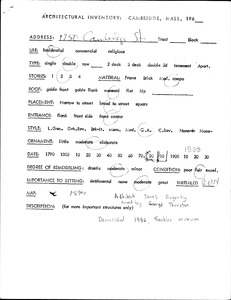 ARCHITECTURAL INVENTORY: CAMBRIDGE, MASS. 196
ADDRESS: 1750 Cambridge St Tract Block
USE: Residential commercial religious
TYPE: single double row 2 deck 3 deck double 3d tenement Apart.
STORIES: 1 2 3 4 MATERIAL: Frame Brick Med. compo
ROOF: gable front gable flank mansard flat hip
PLACEMENT: Narrow to street broad to street square
ENTRANCE: flank front side front center
STYLE: Q.A. C.Rev. None
ORNAMENT: little moderate elaborate
1889
DATE: 1790 1800 10 20 30 40 50 60 70 80 90 1900 10 20 30
DEGREE OF REMODELING: drastic moderate minor CONDITION: poor fair excel.
IMPORTANCE TO SETTING: detrimental none moderate great INITIALED
MAP: 1894
Architect James Fogerty
DESCRIPTION: (for more important structures only) built by George Thurston
Demolished 1982, Sackler museum